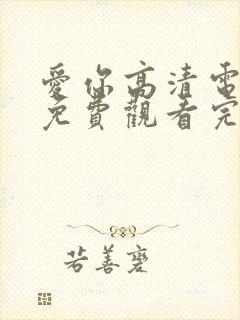 愛你高清電
免費觀看完
若善襃